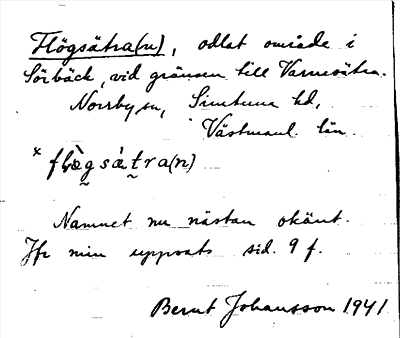 Högsätra(n), odlat område i
Sörbäck, vid gränsen till Varmsätra.
Norrby sn, Simtuna hd,
Västmanl. län.
* fłö̀gsä́tra(n)
Namnet nu nästan okänt.
Jfr min uppsats sid. 9 f.
Bernt Johansson 1941